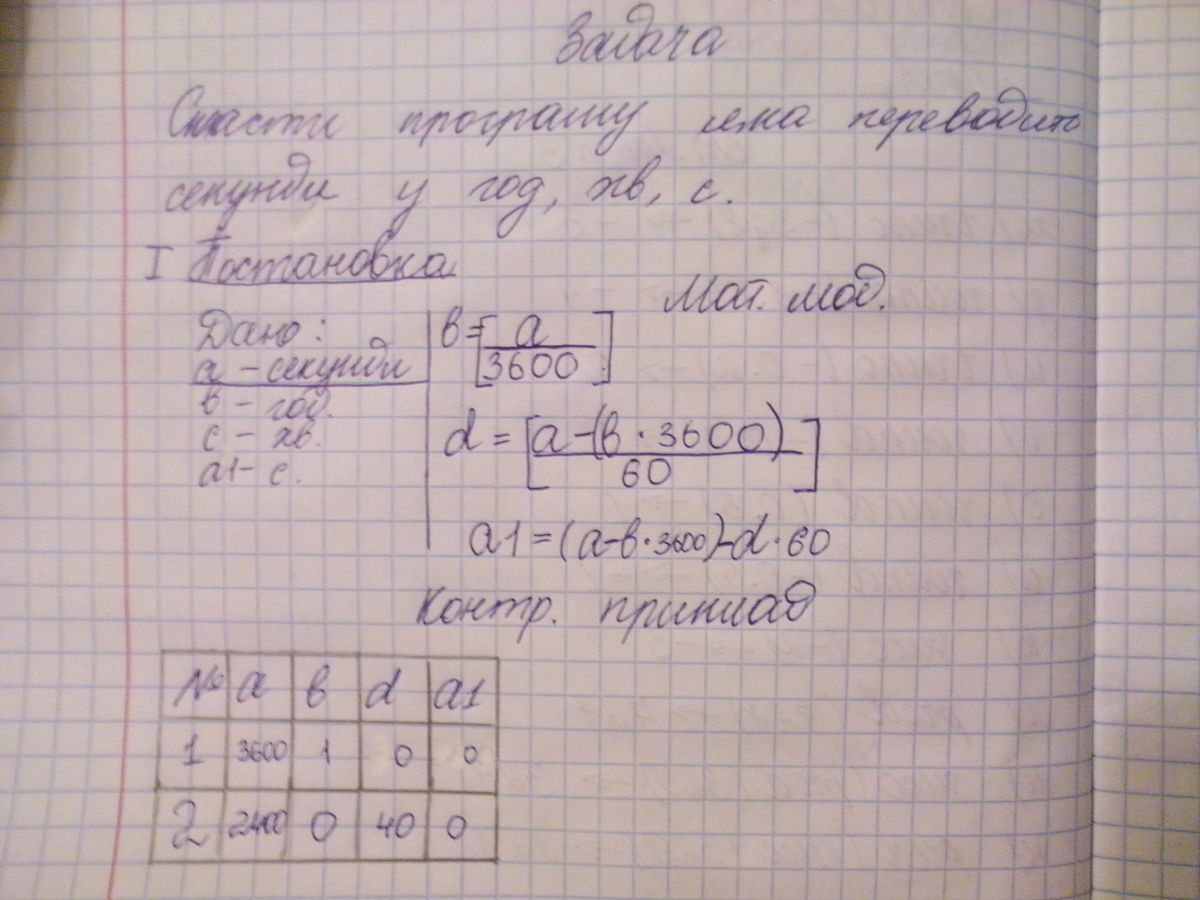 Задача
Скласти програму яка переводить
секунди у год, хв, с.
I Постановка
Мат. мод.
Дано:
a - секунди
в - год.
с - хв.
a1 - с.
в = [a / 3600]
d = [a - (в · 3600) / 60]
a1 = (a - в · 3600) - d · 60
Контр. приклад
№ a в d a1
1 3600 1 0 0
2 2400 0 40 0